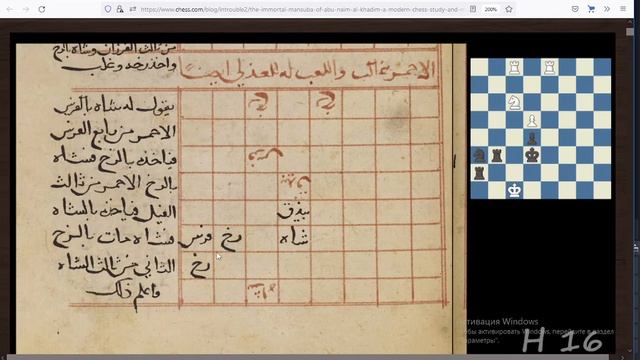 https://www.chess.com/blog/introuble2/the-immortal-mansuba-of-abu-naim-al-khadim-a-modern-chess-study-and-m
200%
من ثالث الفرزان وشاه بالرخ
واخذ رخه وغلب
الاحمر غالب واللعب له للعدلي ايضا
يقول له شاه بالفرس
رخ رخ
الاحمر من رابع الفرس
فياخذه بالرخ فشاه
فرس
بالرخ الاحمر من ثالث
بيذق
الفيل فياخذه بالشاه
بيذق
فشاه مات بالرخ
فرس رخ شاه
الثاني من ثالث الشاه
رخ
فاعلم ذلك
شاه
ктивация Windows
обы активировать Windows, перейдите в раздел
араметры".
H 16